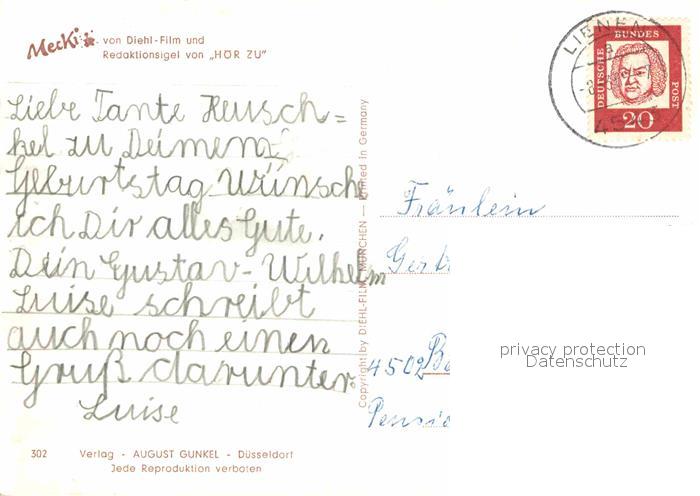 Mecki von Diehl-Film und
Redaktionsigel von „HÖR ZU"
LIENEN
a
DEUTSCHE BUNDES POST
20
Liebe Tante Heusch=
kel zu Deimem
Geburtstag Wünsche
ich Dir alles Gute.
Dein Gustav-Wilhelm
Luise schreibt
auch noch einen
Gruß darunter.
Luise
Copyright by DIEHL-FILM, MÜNCHEN — Printed in Germany
Fräulein
Gert
4502 Ba
Pensio
privacy protection
Datenschutz
302 Verlag - AUGUST GUNKEL - Düsseldorf
Jede Reproduktion verboten